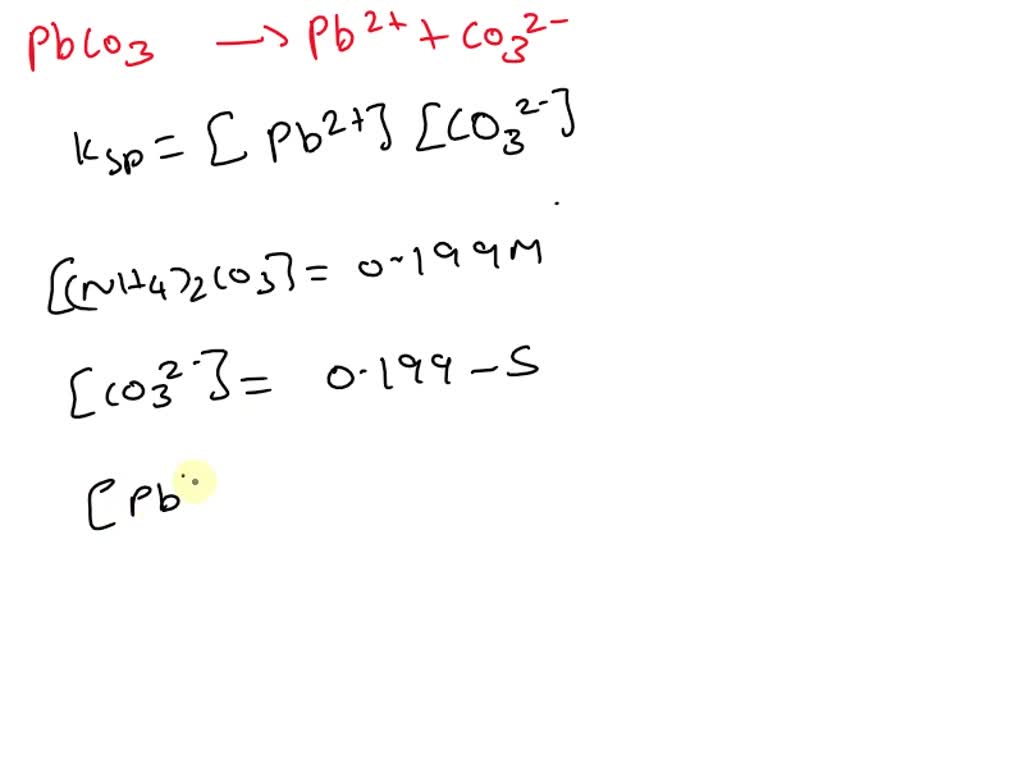 PbCO3 → Pb2+ + CO3 2-
Ksp = [Pb2+] [CO3 2-]
[(NH4)2CO3] = 0.199M
[CO3 2-] = 0.199 - S
[Pb